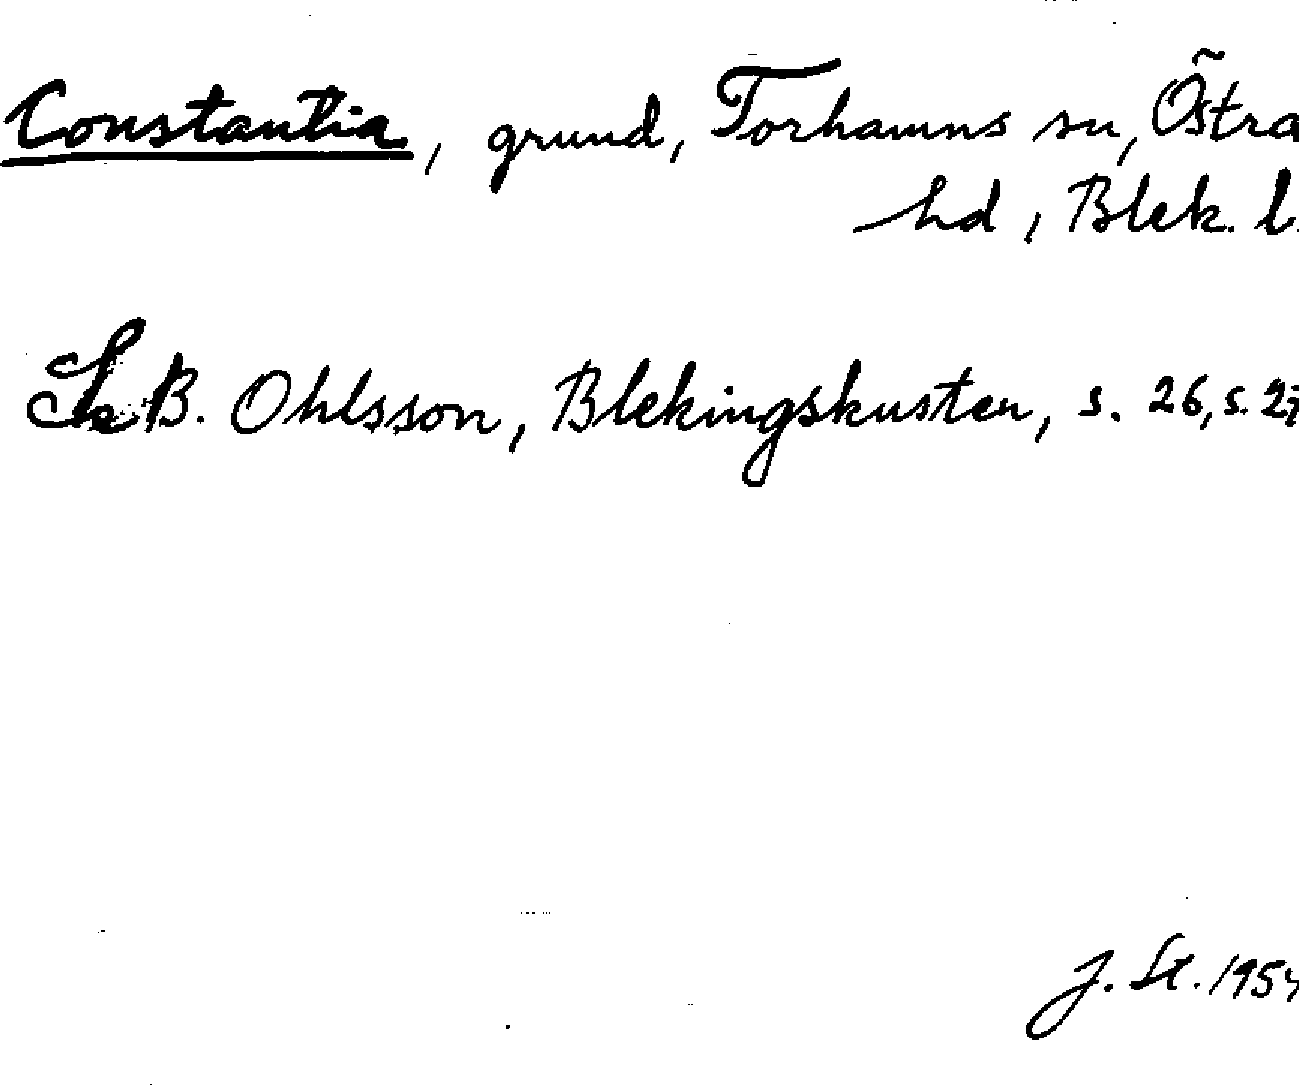 Constantia, grund, Torhamns sn, Östra
hd, Blek. l.
Se B. Ohlsson, Blekingskusten, s. 26, s. 27
J. St. 1954